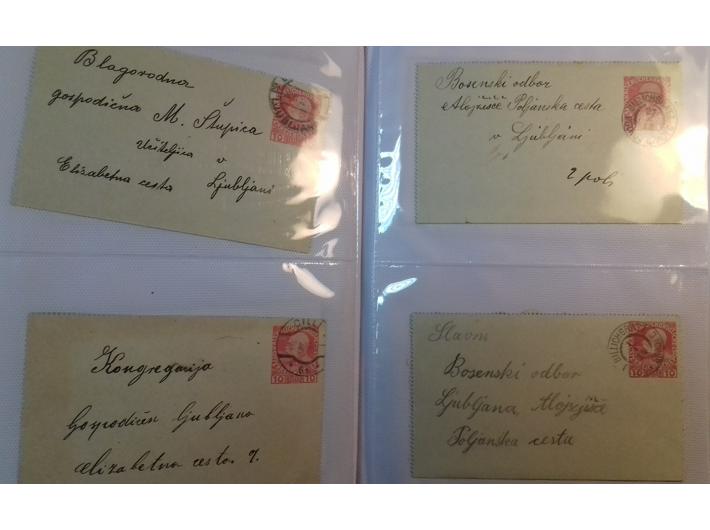 Blagorodna
gospodična M. Štupica
Učiteljica v
Elizabetna cesta Ljubljani
Bosenski odbor
Alojzišče Poljanska cesta
v Ljubljani
10
Kongregacija
Gospodičen Ljubljana
Elizabetna cesta. 7.
CILLI
10 10
Slavni
Bosenski odbor
Ljubljana, Alojzišče
Poljanska cesta
10 10